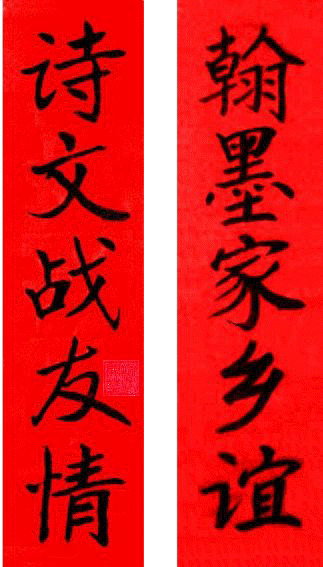 翰墨家乡谊
诗文战友情